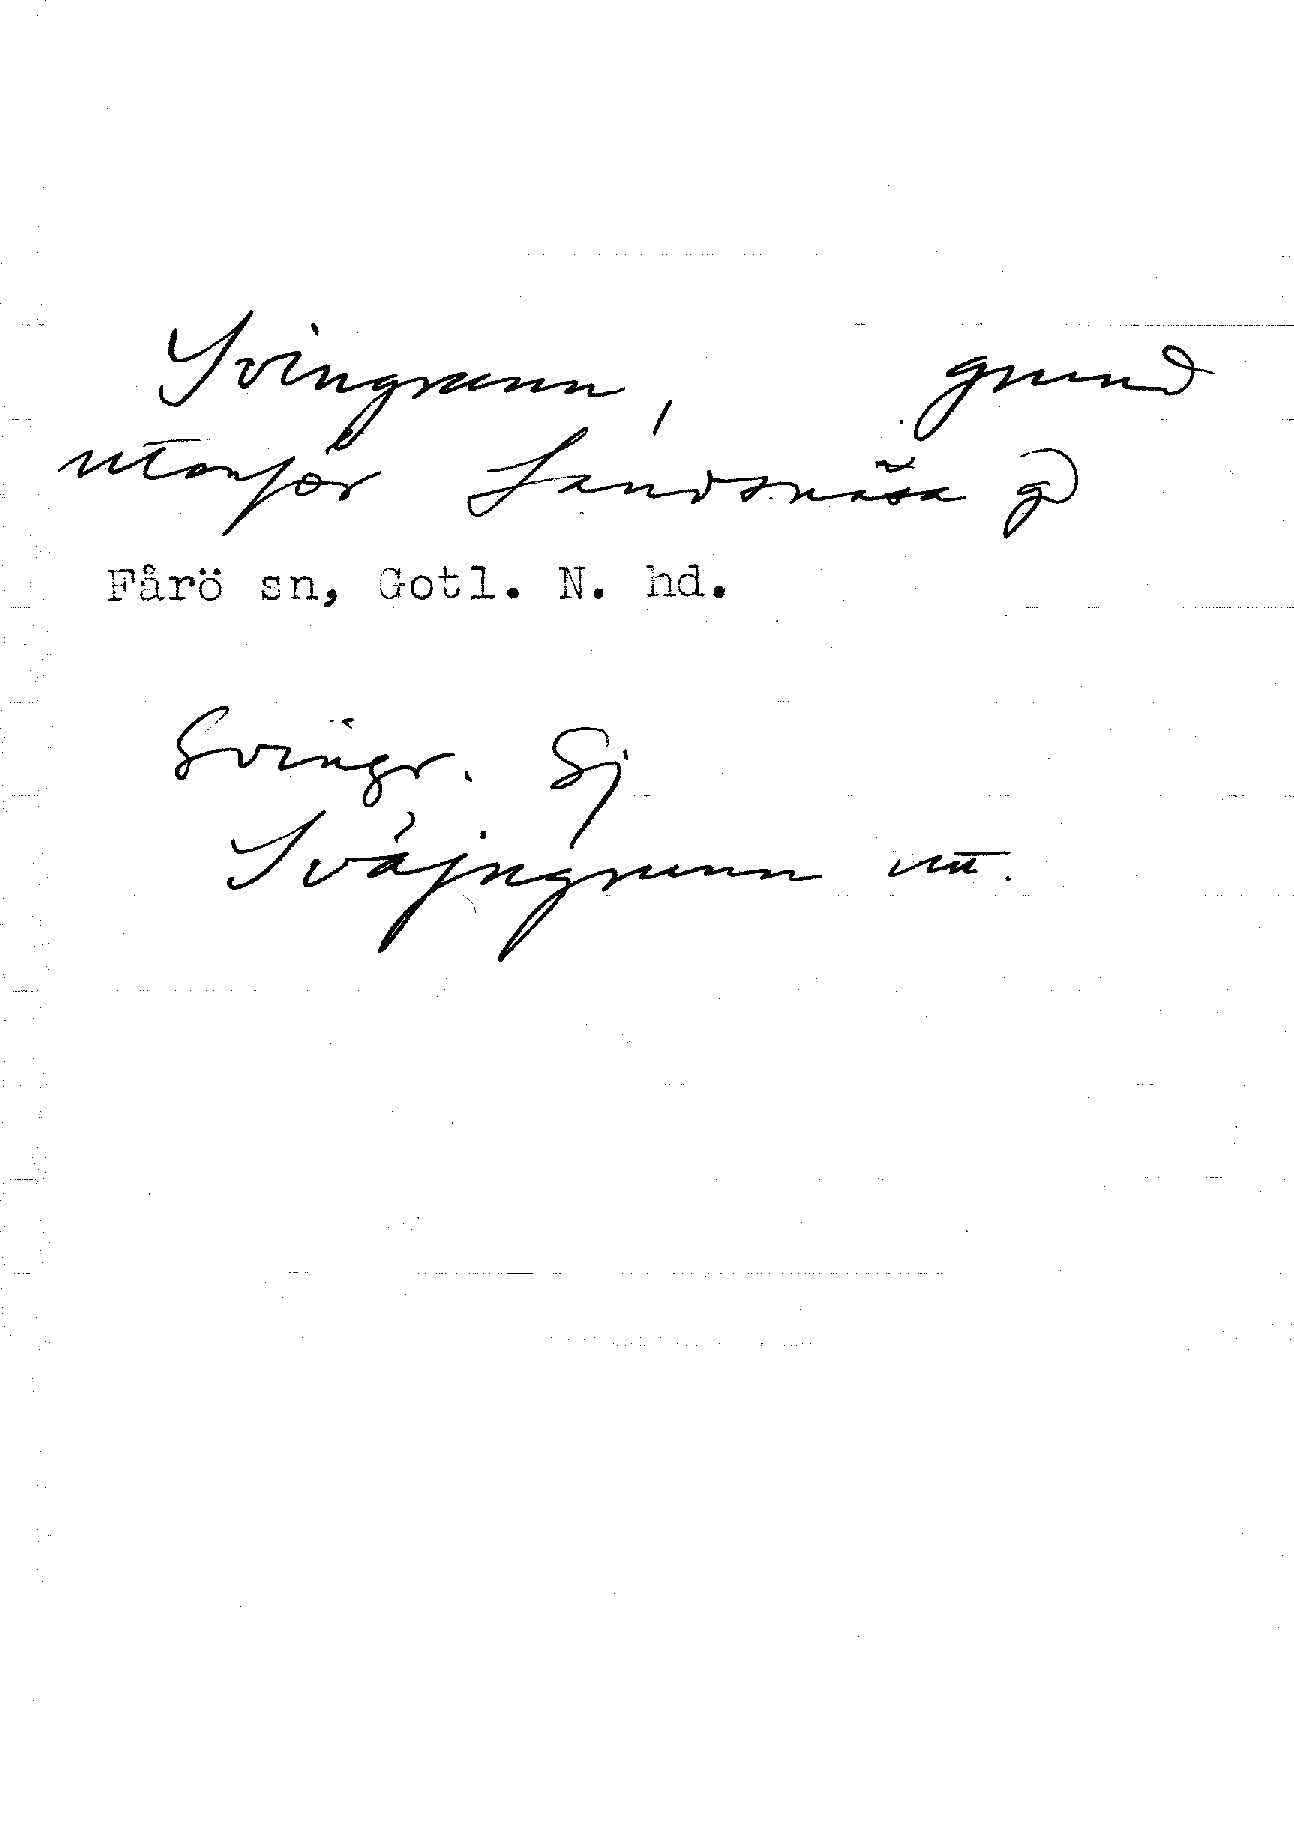 Svingrunn, grund
utanför Landsnäsa gd
Fårö sn, Gotl. N. hd.
Svingr. Sj
Svájngrunn utt.